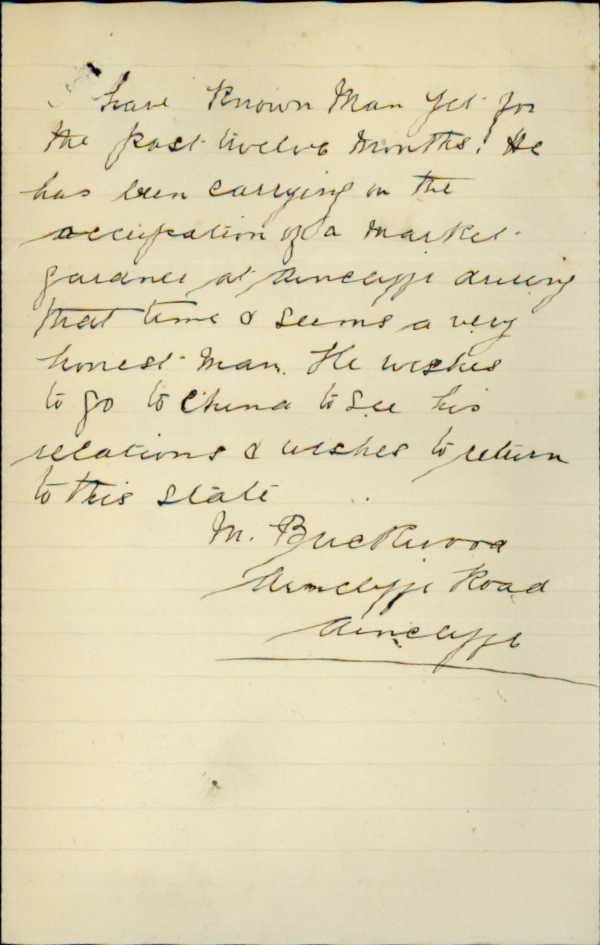 I have known Man Jet for
the past twelve months. He
has been carrying on the
occupation of a Market
gardner at Arncliffe during
that time & seems a very
honest man. He wishes
to go to China to see his
relations & wishes to return
to this State
M. Buckwood
Arncliffe Road
Arncliffe